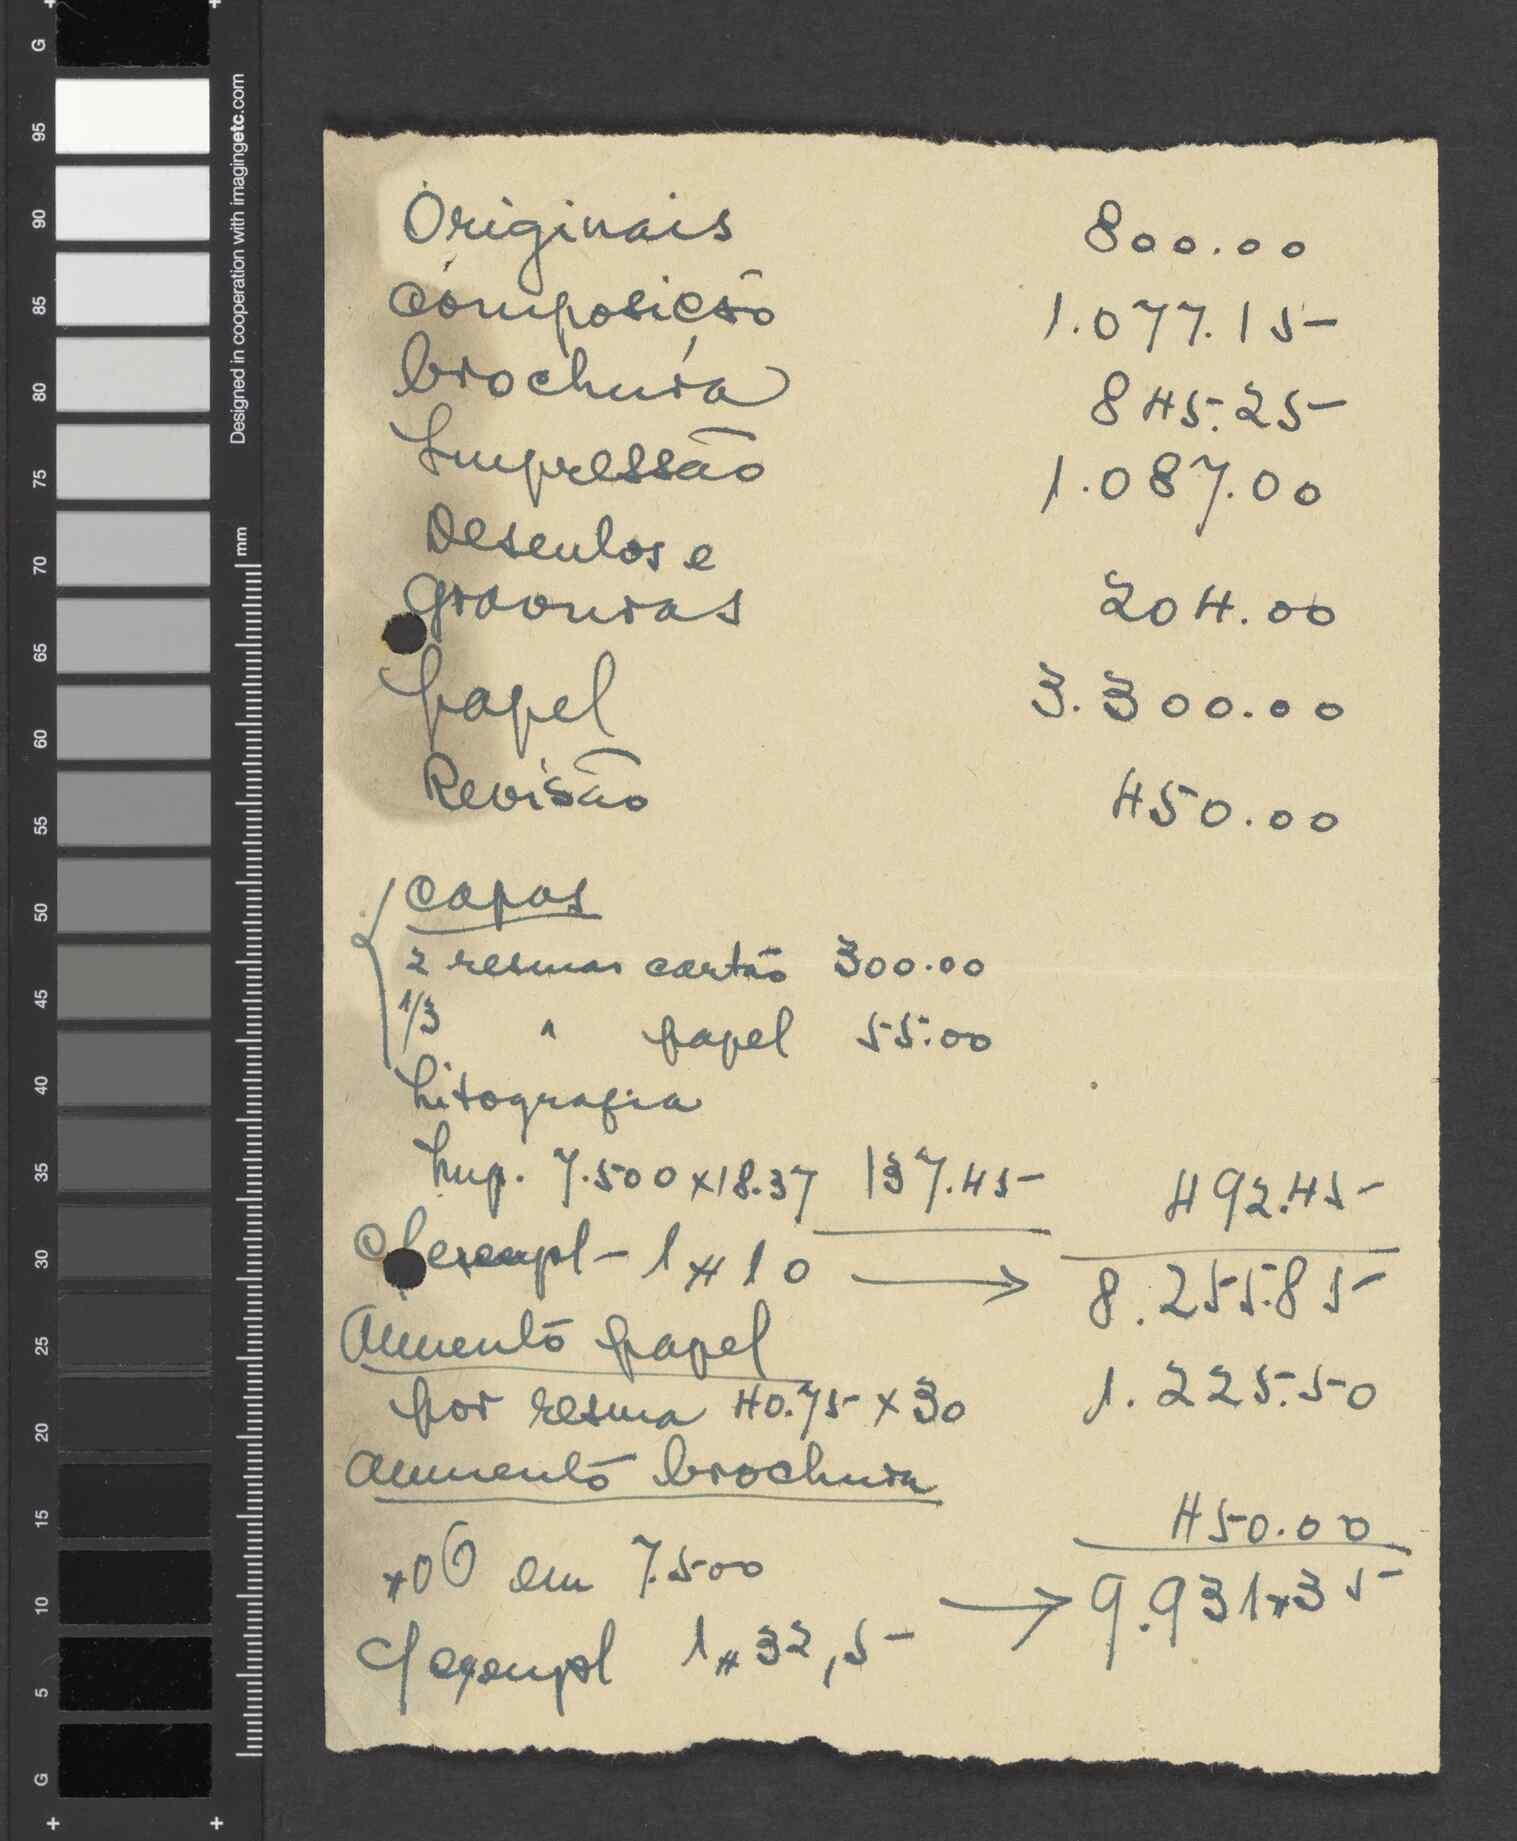 G
95
90
85
80
75
70
65
60
55
50
45
40
35
30
25
20
15
10
5
G
Designed in cooperation with imagingetc.com
mm
Originais 800.00
composição 1.077.15
brochura 845.25
Impressão 1.087.00
Desenhos e
gravuras 204.00
papel 3.300.00
Revisão 450.00
capas
2 resmas cartão 300.00
1/3 " papel 55.00
Litografia
Imp. 7.500 x 18.37 137.45 492.45
c/ exempl - 1 # 10 → 8.255.85
Aumento papel
por resma 40.75 x 30 1.225.50
aumento brochura
450.00
#06 em 7.500
→ 9.931#35
c/ exempl 1 # 32,5